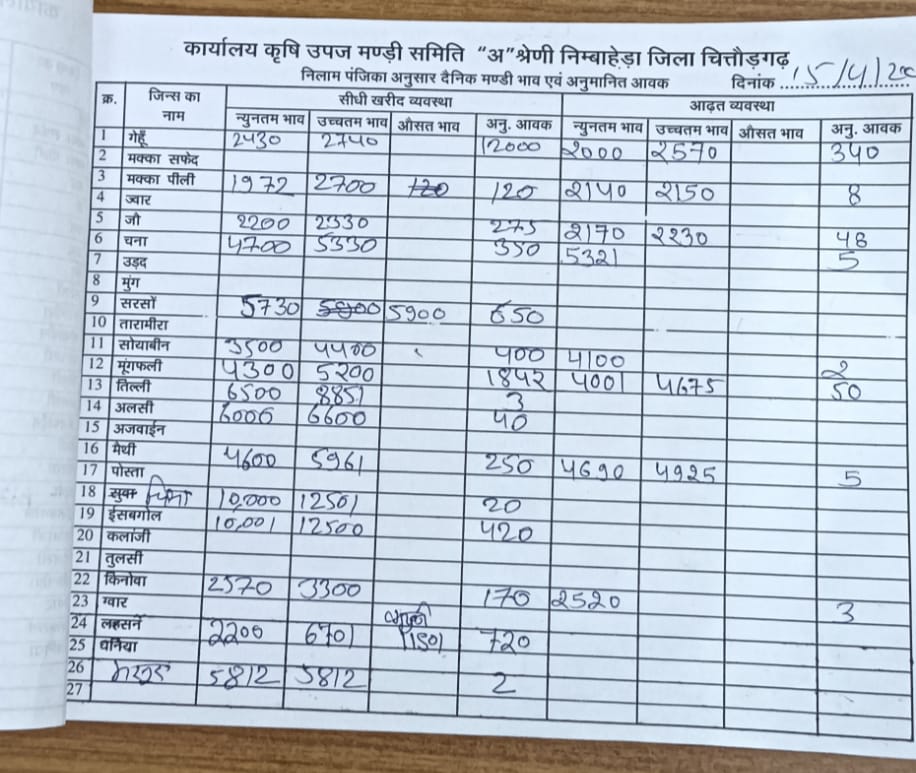 कार्यालय कृषि उपज मण्ड़ी समिति “अ”श्रेणी निम्बाहेड़ा जिला चित्तौड़गढ़
निलाम पंजिका अनुसार दैनिक मण्डी भाव एवं अनुमानित आवक दिनांक 15/4/20
क्र. जिन्स का नाम सीधी खरीद व्यवस्था आढ़त व्यवस्था
न्युनतम भाव उच्चतम भाव औसत भाव अनु. आवक न्युनतम भाव उच्चतम भाव औसत भाव अनु. आवक
1 गेहूँ 2430 2740 12000 2000 2570 340
2 मक्का सफेद
3 मक्का पीली 1972 2700 120 120 2140 2150 8
4 ज्वार
5 जौ 2200 2330 275 2170 2230 48
6 चना 4700 5330 350 5321 5
7 उड़द
8 मुंग
9 सरसों 5730 5900 5900 650
10 तारामीरा
11 सोयाबीन 3500 4400 400 4100 2
12 मूंगफली 4300 5200 1842 4001 4675 50
13 तिल्ली 6500 8851 3
14 अलसी 6006 6600 40
15 अजवाईन
16 मैथी 4600 5961 250 4690 4925 5
17 पोस्ता
18 सुवा चिया 10,000 12501 20
19 ईसबगोल 10,001 12500 420
20 कलांजी
21 तुलसी
22 किनोवा 2570 3300 170 2520 3
23 ग्वार
24 लहसन 2200 6701 11501 720
25 धनिया
26 5812 5812 2
27